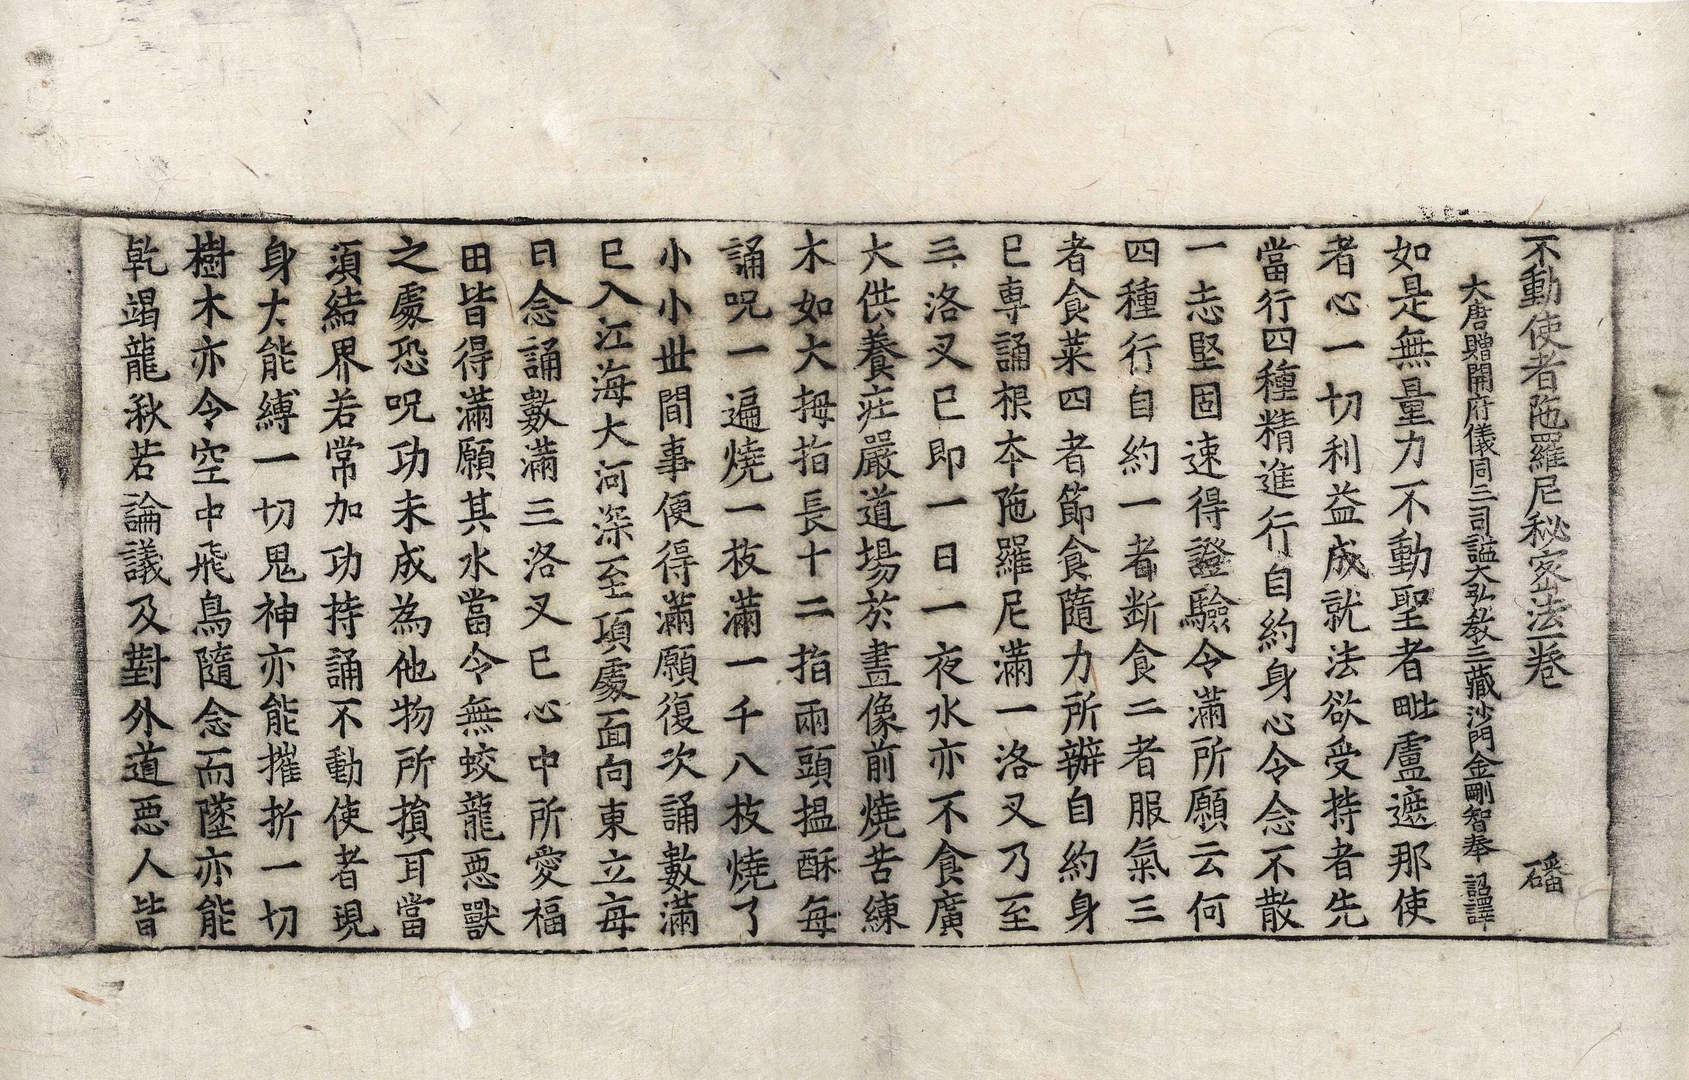 不動使者陁羅尼秘密法一卷 磻
大唐贈開府儀同三司謚大弘教三藏沙門金剛智奉 詔譯
如是無量力不動聖者毗盧遮那使
者心一切利益成就法欲受持者先
當行四種精進行自約身心令念不散
一志堅固速得證驗令滿所願云何
四種行自約一者断食二者服氣三
者食菜四者節食隨力所辦自約身
已專誦根夲陁羅尼滿一洛叉乃至
三洛叉已即一日一夜水亦不食廣
大供養莊嚴道場於畫像前燒苦練
木如大拇指長十二指兩頭搵酥每
誦呪一遍燒一枝滿一千八枝燒了
小小世間事便得滿願復次誦數滿
已入江海大河深至項處面向東立每
日念誦數滿三洛叉已心中所愛福
田皆得滿願其水當令無蛟龍惡獸
之處恐呪功未成為他物所損耳當
須結界若常加功持誦不動使者現
身大能縛一切鬼神亦能摧折一切
樹木亦令空中飛鳥隨念而墜亦能
乾竭龍湫若論議及對外道惡人皆